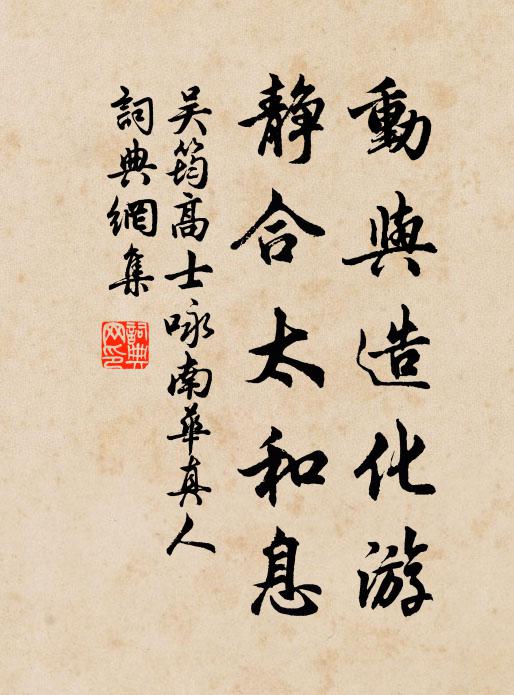 動與造化游
静合太和息
吴筠高士咏南華真人
詞典網集
詞典網印